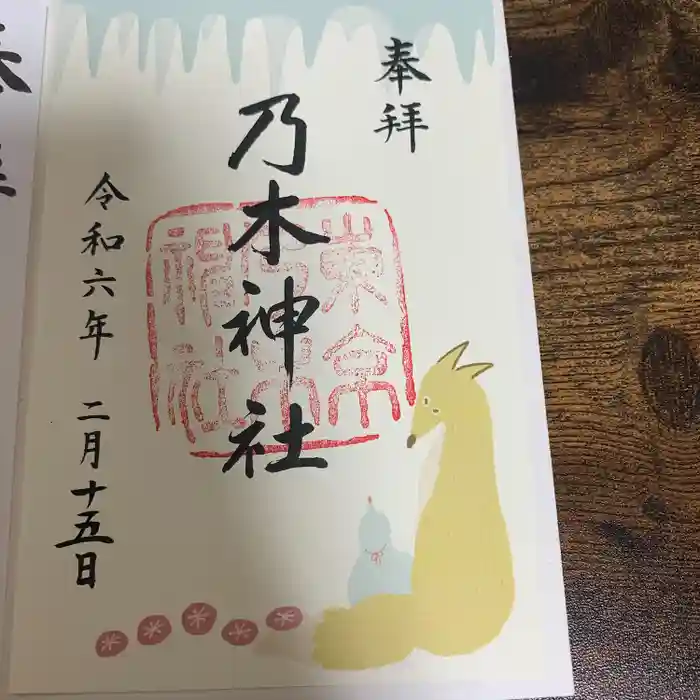 奉拝
乃木神社
東京
乃木
神社
令和六年 二月十五日
奉拝